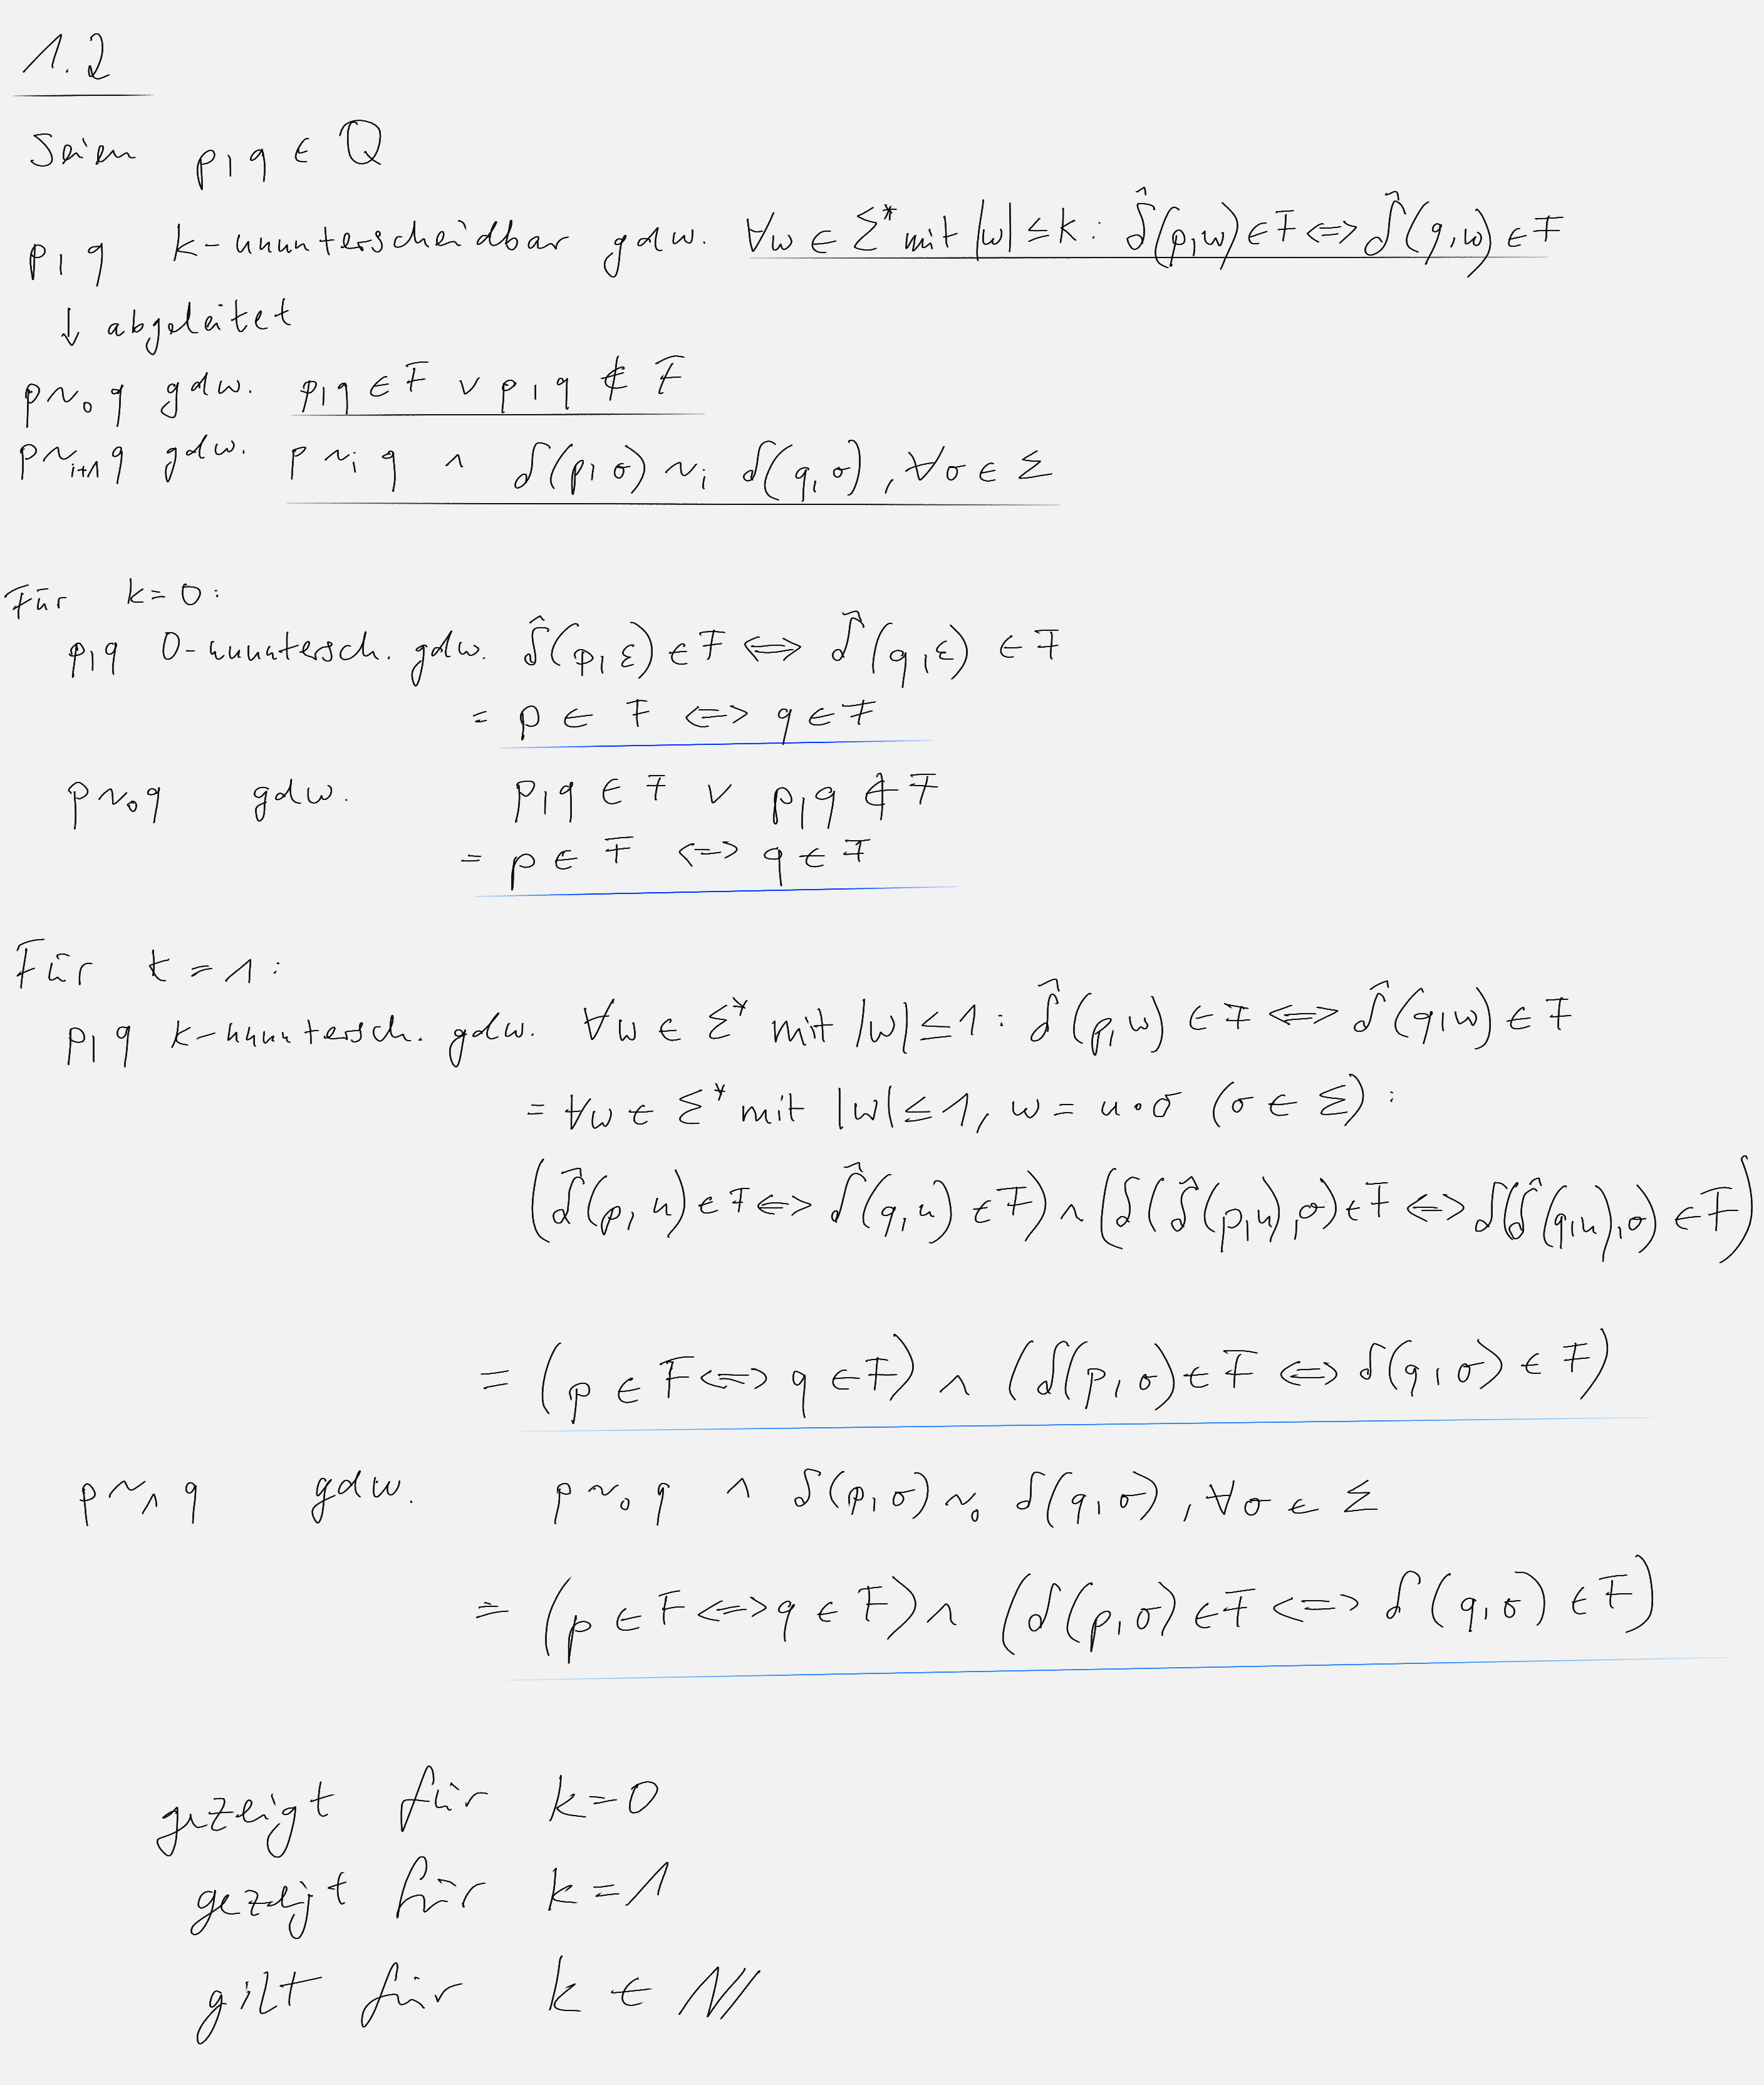 1.2
Seien p, q ∈ Q
p, q k-ununterscheidbar gdw. ∀w ∈ Σ* mit |w| ≤ k : δ̂(p,w) ∈ F ⟺ δ̂(q,w) ∈ F
↓ abgeleitet
p ~₀ q gdw. p, q ∈ F ∨ p, q ∉ F
p ~ᵢ₊₁ q gdw. p ~ᵢ q ∧ δ(p,σ) ~ᵢ δ(q,σ) , ∀σ ∈ Σ
Für k = 0 :
p, q 0-ununtersch. gdw. δ̂(p, ε) ∈ F ⟺ δ̂(q, ε) ∈ F
= p ∈ F ⟺ q ∈ F
p ~₀ q gdw. p, q ∈ F ∨ p, q ∉ F
= p ∈ F ⟺ q ∈ F
Für k = 1 :
p, q k-ununtersch. gdw. ∀w ∈ Σ* mit |w| ≤ 1 : δ̂(p, w) ∈ F ⟺ δ̂(q, w) ∈ F
= ∀w ∈ Σ* mit |w| ≤ 1, w = u • σ (σ ∈ Σ) :
(δ̂(p, u) ∈ F ⟺ δ̂(q, u) ∈ F) ∧ (δ(δ̂(p,u),σ) ∈ F ⟺ δ(δ̂(q,u),σ) ∈ F)
= (p ∈ F ⟺ q ∈ F) ∧ (δ(p, σ) ∈ F ⟺ δ(q, σ) ∈ F)
p ~₁ q gdw. p ~₀ q ∧ δ(p,σ) ~₀ δ(q,σ) , ∀σ ∈ Σ
= (p ∈ F ⟺ q ∈ F) ∧ (δ(p,σ) ∈ F ⟺ δ(q,σ) ∈ F)
gezeigt für k = 0
gezeigt für k = 1
gilt für k ∈ ℕ